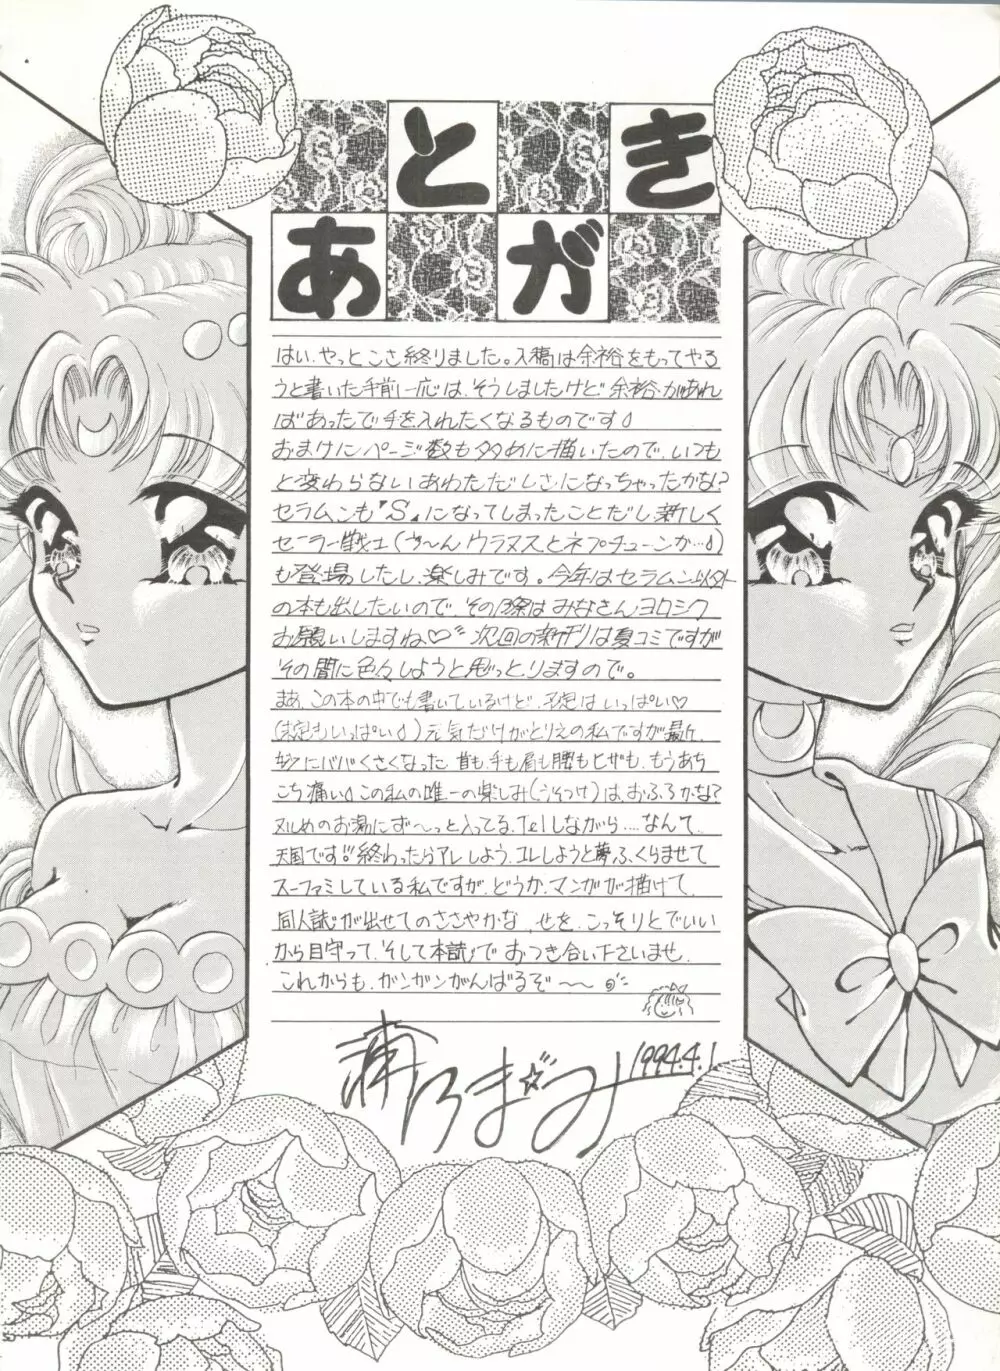 あとがき
はい、やっとこさ終りました。入稿は余裕をもってやろ
うと書いた手前一応は、そうしましたけど、余裕があれ
ばあったで手を入れたくなるものです♪
おまけにページ数も多めに描いたので、いつも
と変わらないあわただしさになっちゃったかな?
セラムンも『S』になってしまったことだし新しく
セーラー戦士(う〜んウラヌスとネプチューンか…♪)
も登場したし、楽しみです。今年はセラムン以外
の本も出したいので、その際はみなさんヨロシク
お願いしますね♡ 次回の新刊は夏コミですが
その間に色々しようと思っとりますので。
まあ、この本の中でも書いているけど、予定はいっぱい♡
(未定もいっぱい♪)元気だけがとりえの私ですが最近、
妙にババくさくなった 首も、手も肩も腰もヒザも、もうあち
こち痛い♪この私の唯一の楽しみ(うそつけ)は、おふろかな?
ヌルめのお湯にず〜っと入ってる、Telしながら……なんて
天国です!!終わったらアレしよう、コレしようと夢ふくらませて
スーファミしている私ですが、どうか、マンガが描けて、
同人誌が出せてのささやかな、せを、こっそりとでいい
から目守って、そして本誌でおつき合い下さいませ。
これからも、ガンガンがんばるぞ〜〜
1994.4.1